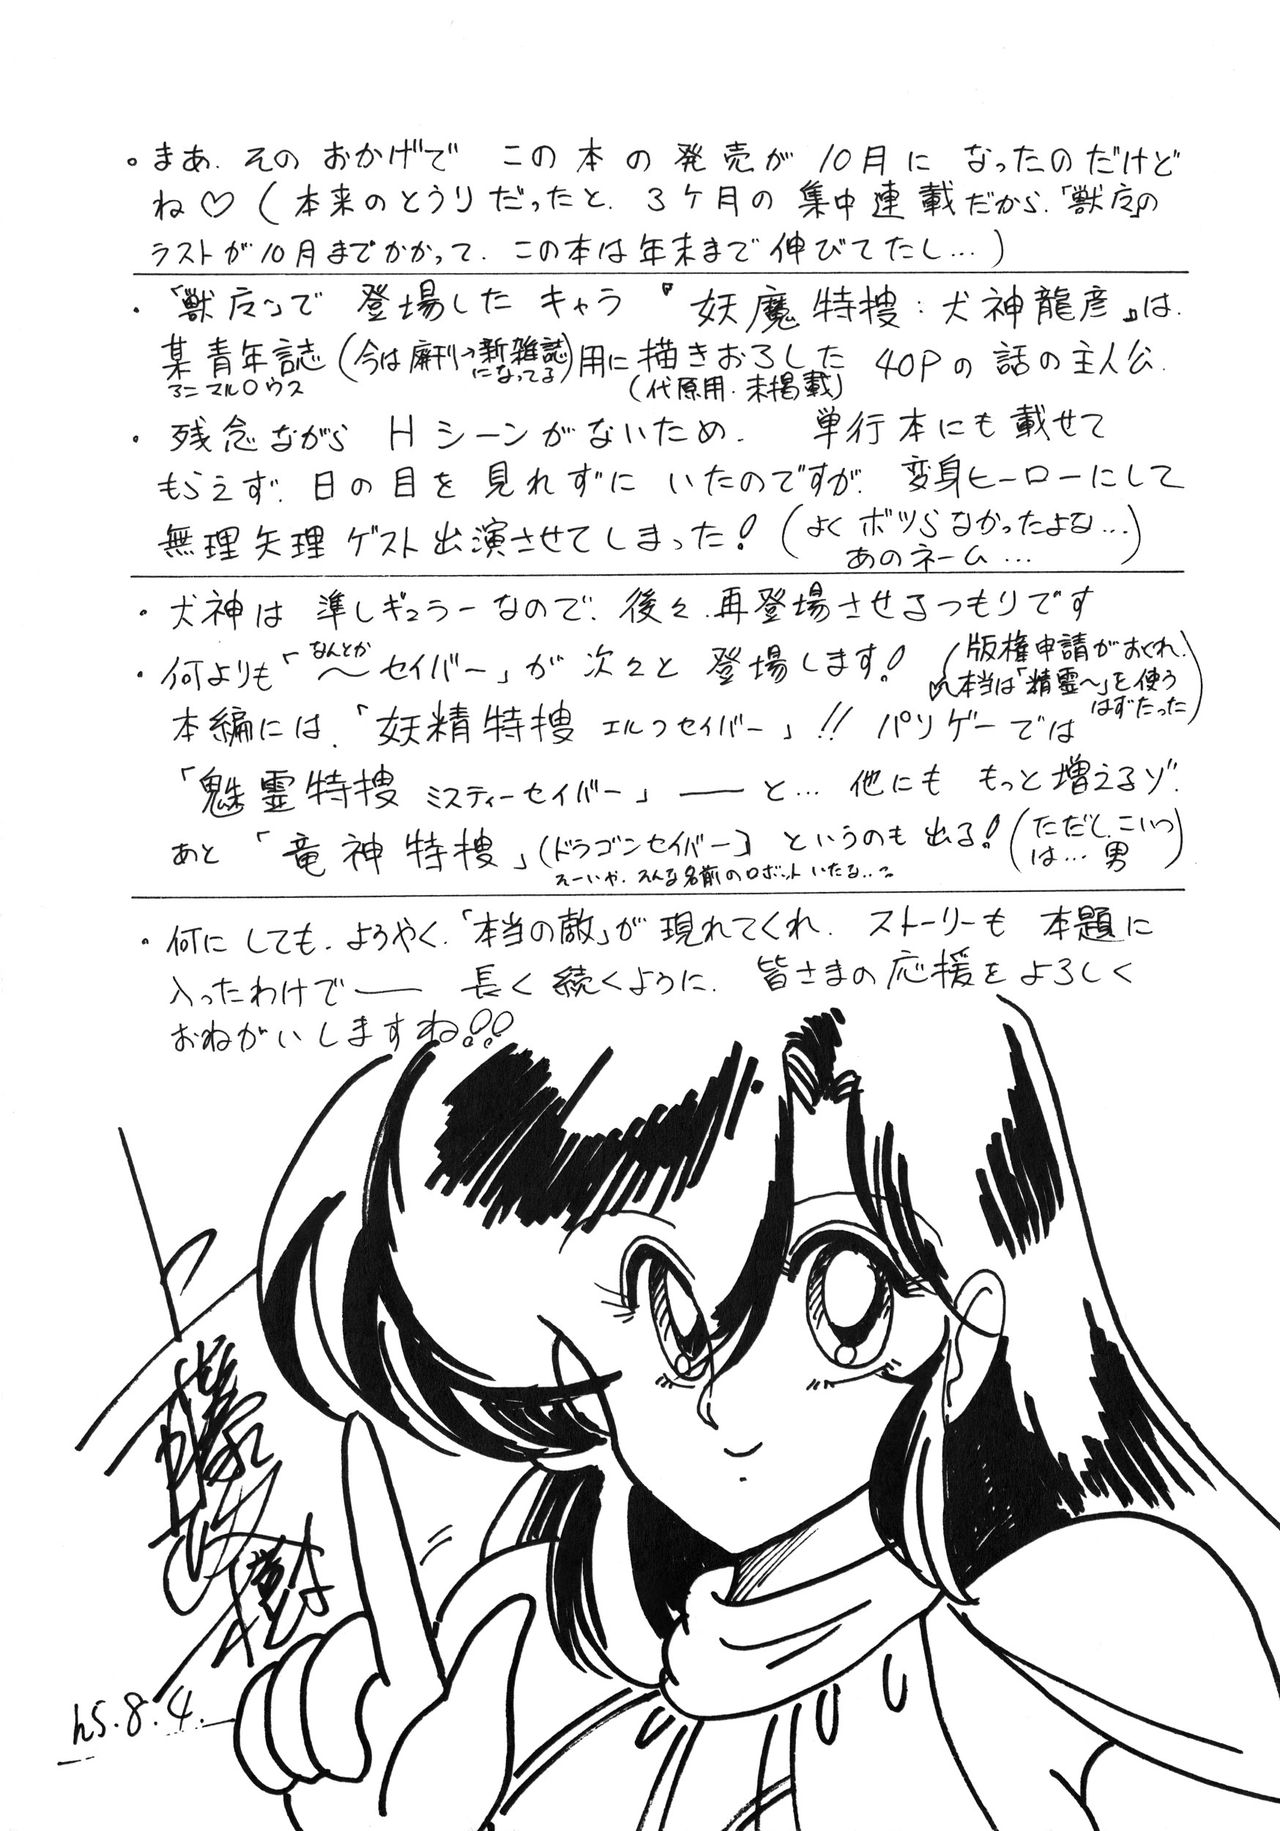 。まあ、そのおかげで この本の発売が 10月に なったのだけど
ね♡(本来のとうりだったと、3ケ月の集中連載だから、「獣 」の
ラストが10月までかかって、この本は年末まで伸びてたし…)
・「獣 」で 登場した キャラ『妖魔特捜:犬神龍彦』は、
某青年誌(今は廃刊→新雑誌になってる)用に描きおろした 40Pの話の主人公.
アニマルハウス
(代原用・未掲載)
・残念ながら Hシーンがないため、単行本にも載せて
もらえず、日の目を見れずに いたのですが、変身ヒーローにして
無理矢理ゲスト出演させてしまった!(よくボツらなかったよな…
あのネーム…)
・犬神は 準レギュラーなので、後々、再登場させるつもりです
・何よりも「なんとか〜セイバー」が次々と 登場します!(版権申請がおくれ、
本当は「精霊〜」を使う
はずだった)
本編には、「妖精特捜 エルフセイバー」!! パソゲーでは
「魅霊特捜 ミスティーセイバー」——と… 他にも もっと増えるゾ.
あと「竜神特捜」(ドラゴンセイバー) というのも出る!(ただし、こいつ
は…男)
そーいや、そんな名前のロボットいたな‥
・何にしても、ようやく、「本当の敵」が 現れてくれ、ストーリーも 本題に
入ったわけで—— 長く続くように、皆さまの応援をよろしく
おねがいしますね!!
h5.8.4.